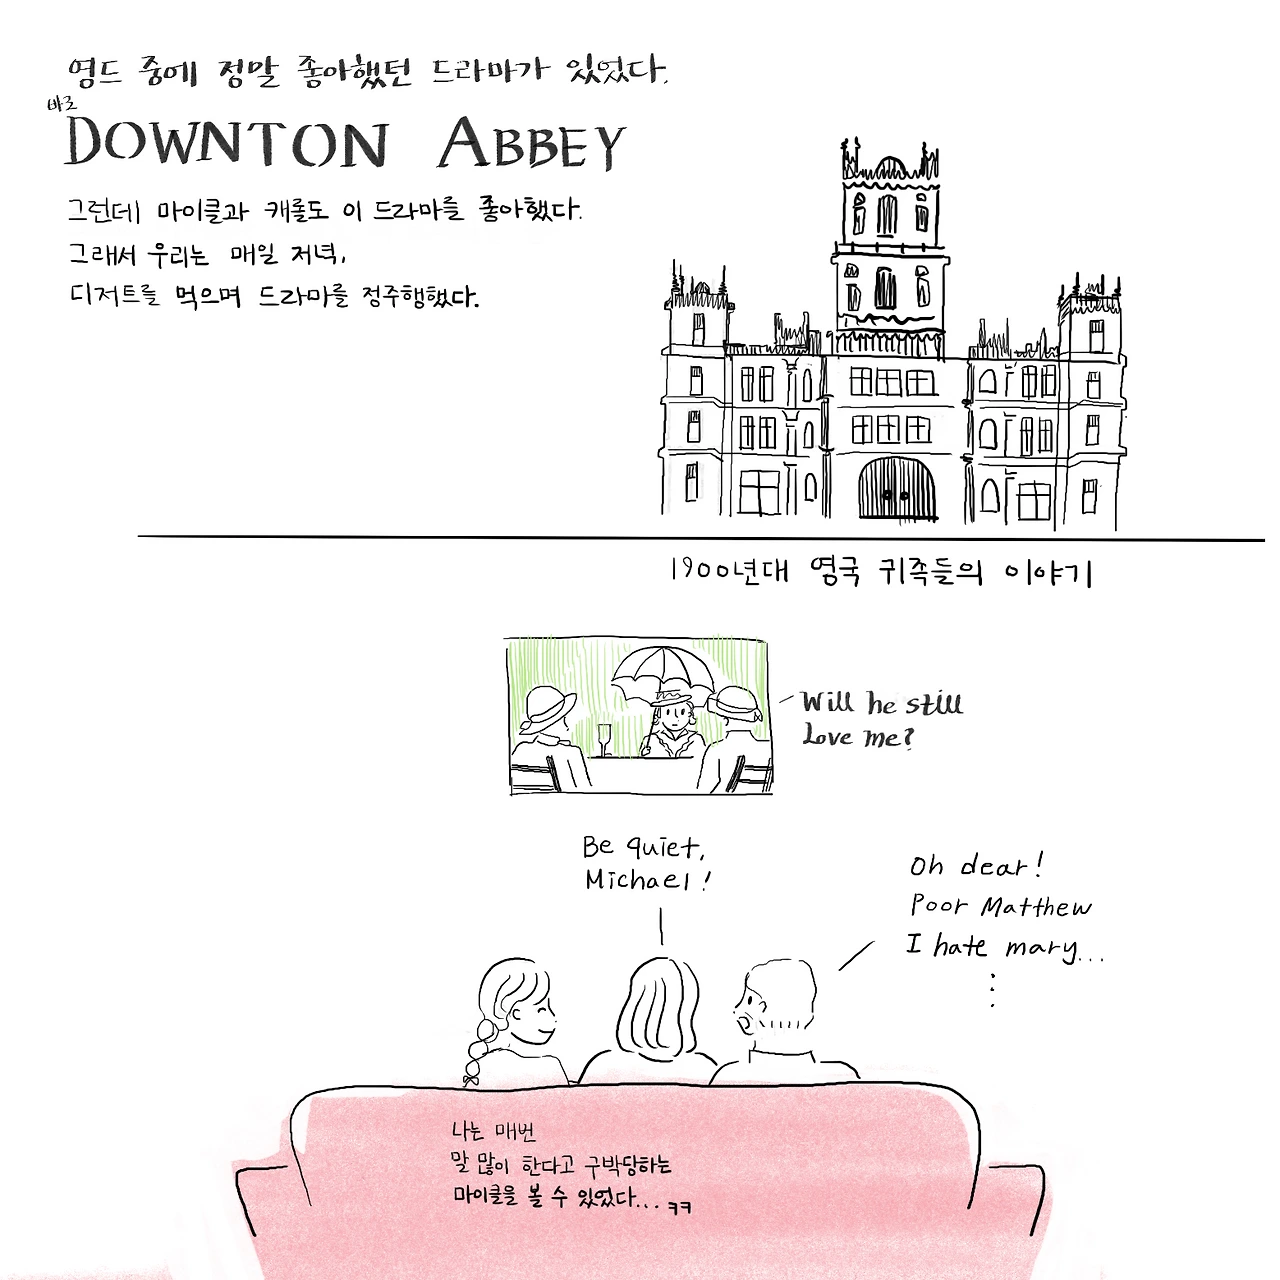 영드 중에 정말 좋아했던 드라마가 있었다.
바로
DOWNTON ABBEY
그런데 마이클과 캐롤도 이 드라마를 좋아했다.
그래서 우리는 매일 저녁,
디저트를 먹으며 드라마를 정주행했다.
1900년대 영국 귀족들의 이야기
Will he still
Love me?
Be quiet,
Michael!
Oh dear!
Poor Matthew
I hate mary...
나는 매번
말 많이 한다고 구박당하는
마이클을 볼 수 있었다... ㅋㅋ